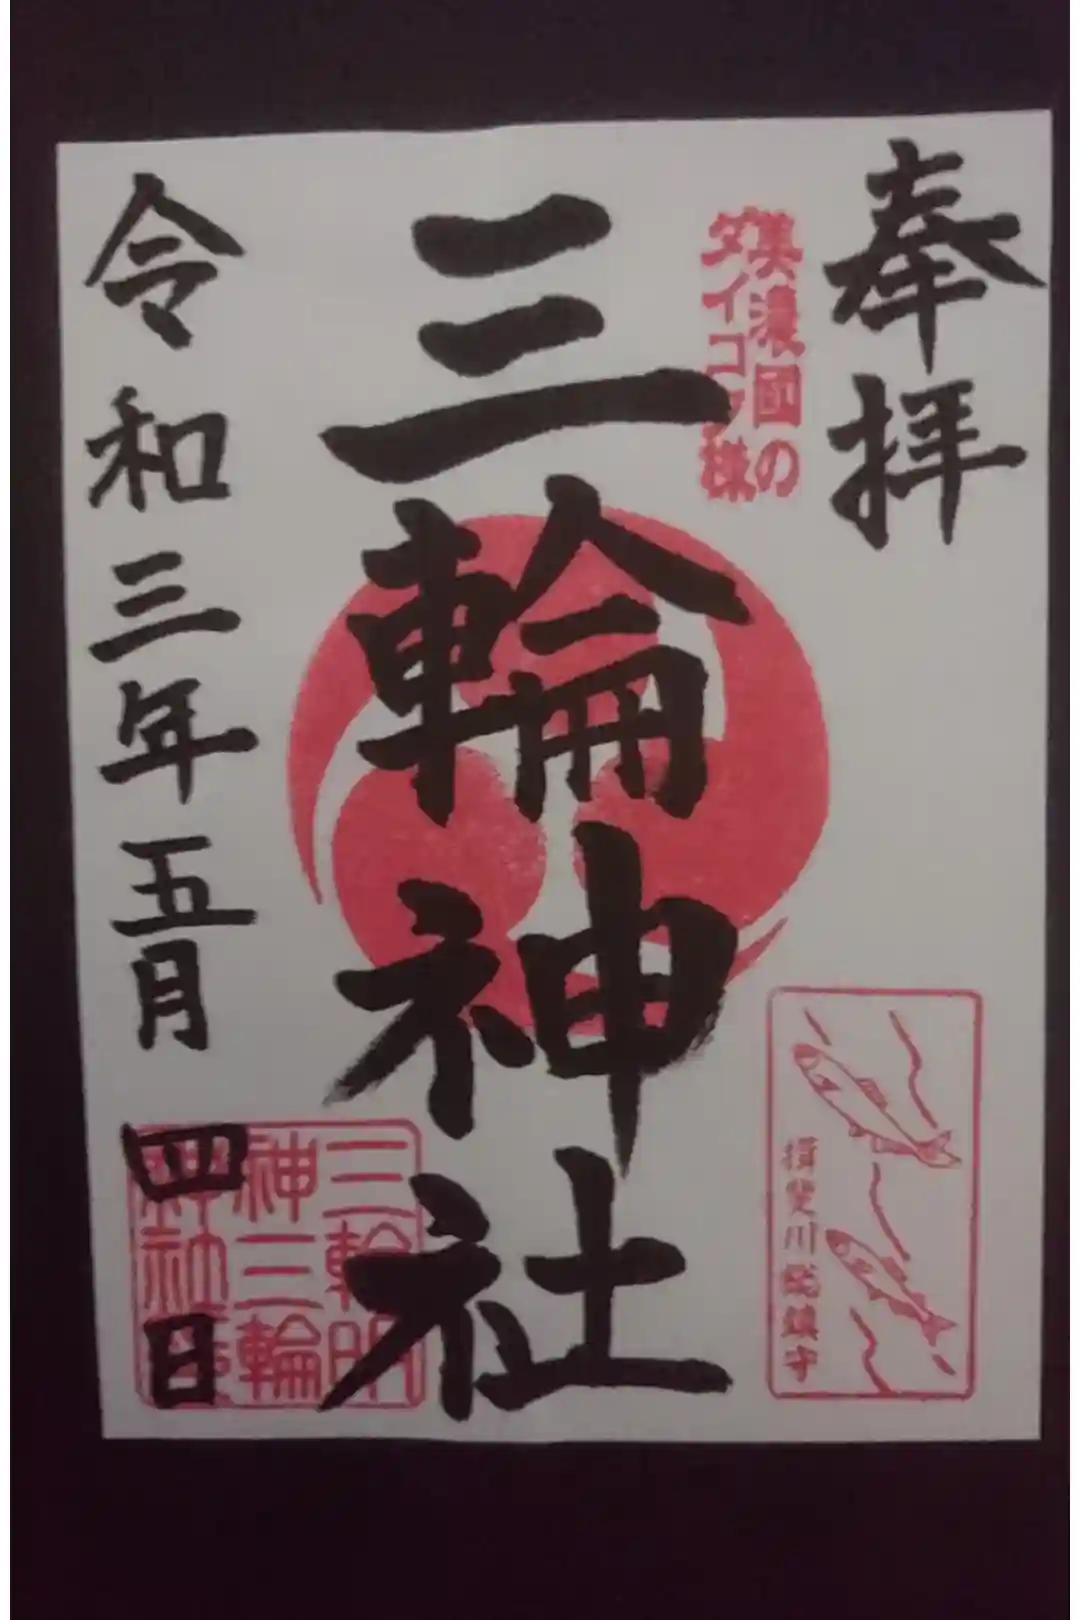 奉拝
美濃國の
ダイコク様
三輪神社
令和三年五月四日
揖斐川総鎮守
三輪明
神三輪
神社